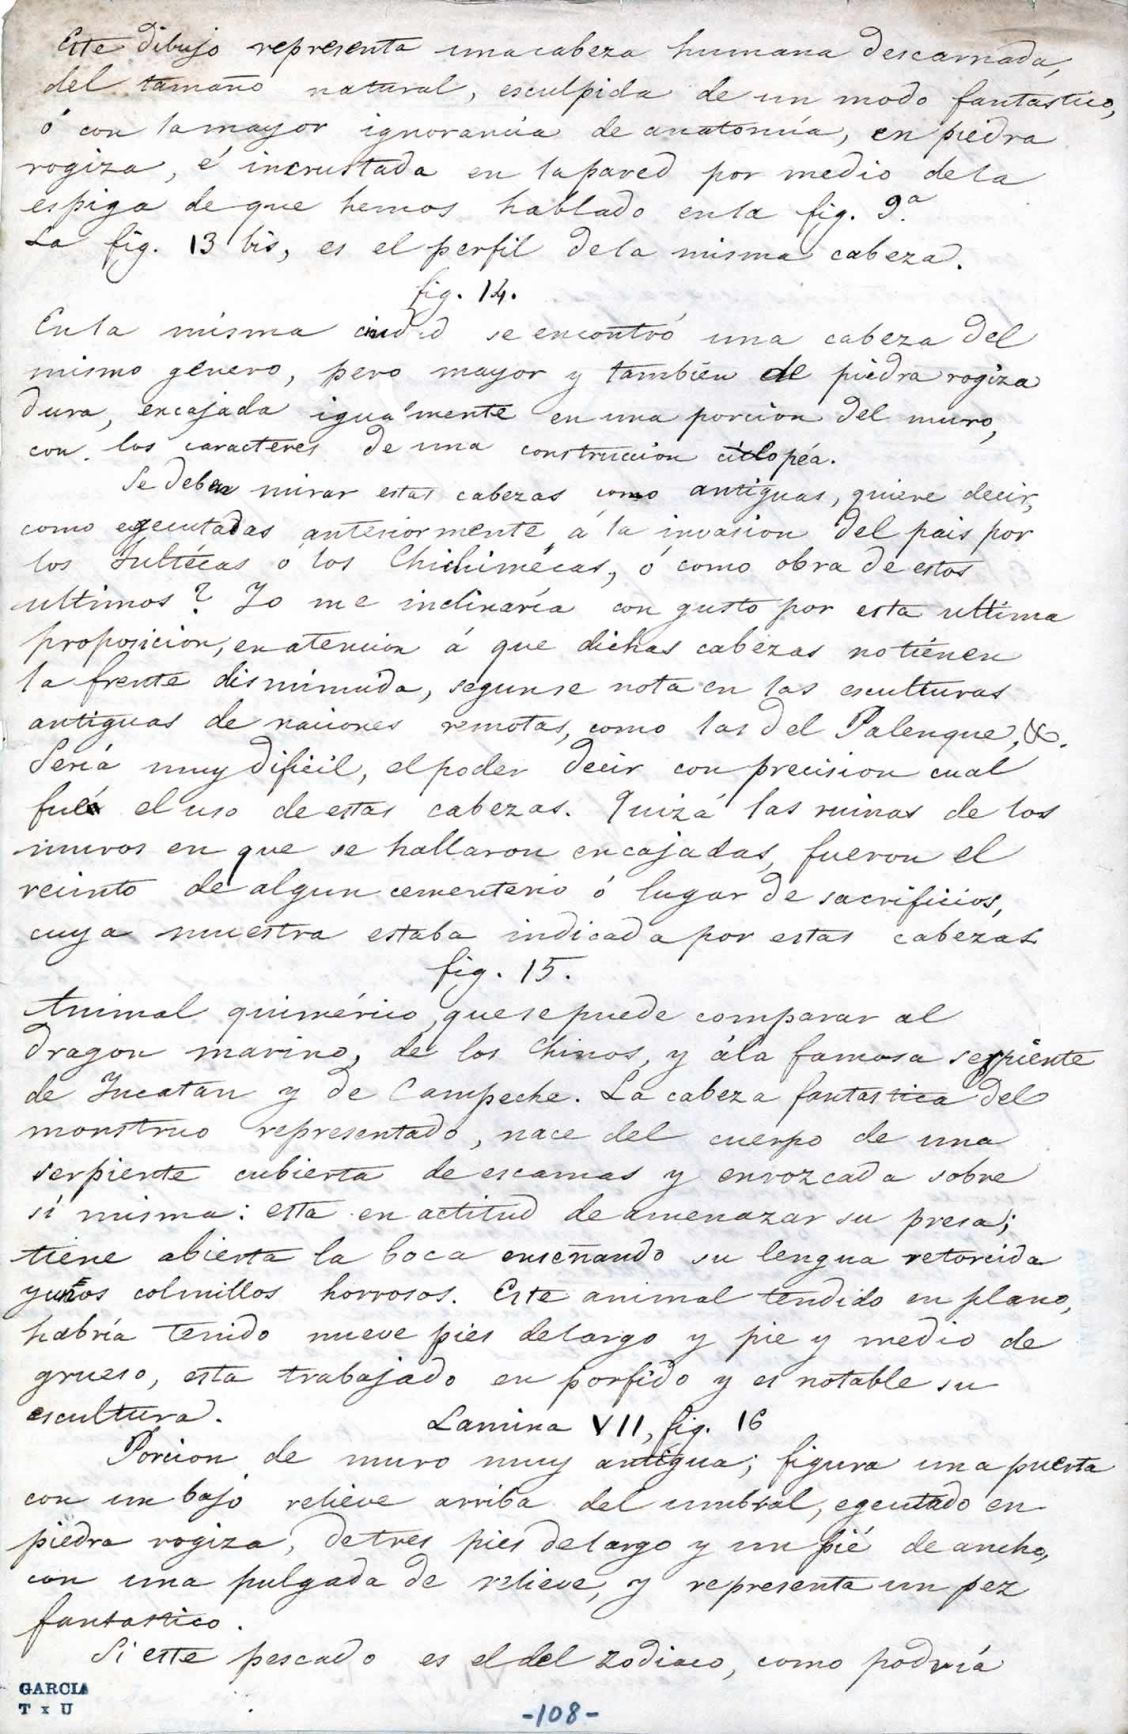 Este dibujo representa una cabeza humana descarnada,
del tamaño natural, esculpida de un modo fantastico,
ó con la mayor ignorancia de anatomía, en piedra
rogiza, é incrustada en la pared por medio de la
espiga de que hemos hablado en la fig. 9.a
La fig. 13 bis, es el perfil de la misma cabeza.
fig. 14.
En la misma ciudad se encontró una cabeza del
mismo género, pero mayor y tambien de piedra rogiza
dura, encajada igualmente en una porcion del muro,
con los caracteres de una construccion ciclopéa.
Se deben mirar estas cabezas como antiguas, quiere decir,
como egecutadas anteriormente á la invasion del pais por
los Tultécas ó los Chichimécas, ó como obra de estos
ultimos? Yo me inclinaría con gusto por esta ultima
proposicion, en atencion á que dichas cabezas no tienen
la frente disminuida, segun se nota en las esculturas
antiguas de naciones remotas, como las del Palenque, &.
Seria muy dificil, el poder decir con precision cual
fué el uso de estas cabezas. Quizá las ruinas de los
muros en que se hallaron encajadas, fueron el
recinto de algun cementerio ó lugar de sacrificios,
cuya muestra estaba indicada por estas cabezas.
fig. 15.
Animal quimérico, que se puede comparar al
dragon marino, de los Chinos, y á la famosa serpiente
de Yucatan y de Campeche. La cabeza fantastica del
monstruo representado, nace del cuerpo de una
serpiente cubierta de escamas y enrozcada sobre
si misma: esta en actitud de amenazar su presa;
tiene abierta la boca enseñando su lengua retorcida
y unos colmillos horrosos. Este animal tendido en plano,
habría tenido nueve pies de largo y pie y medio de
grueso, esta trabajado en porfido y es notable su
escultura.
Lamina VII, fig. 16
Porcion de muro muy antigua; figura una puerta
con un bajo relieve arriba del umbral, egecutado en
piedra rogiza, de tres pies de largo y un pié de ancho,
con una pulgada de relieve, y representa un pez
fantastico.
Si este pescado es el del zodiaco, como podría
GARCIA
T x U
-108-